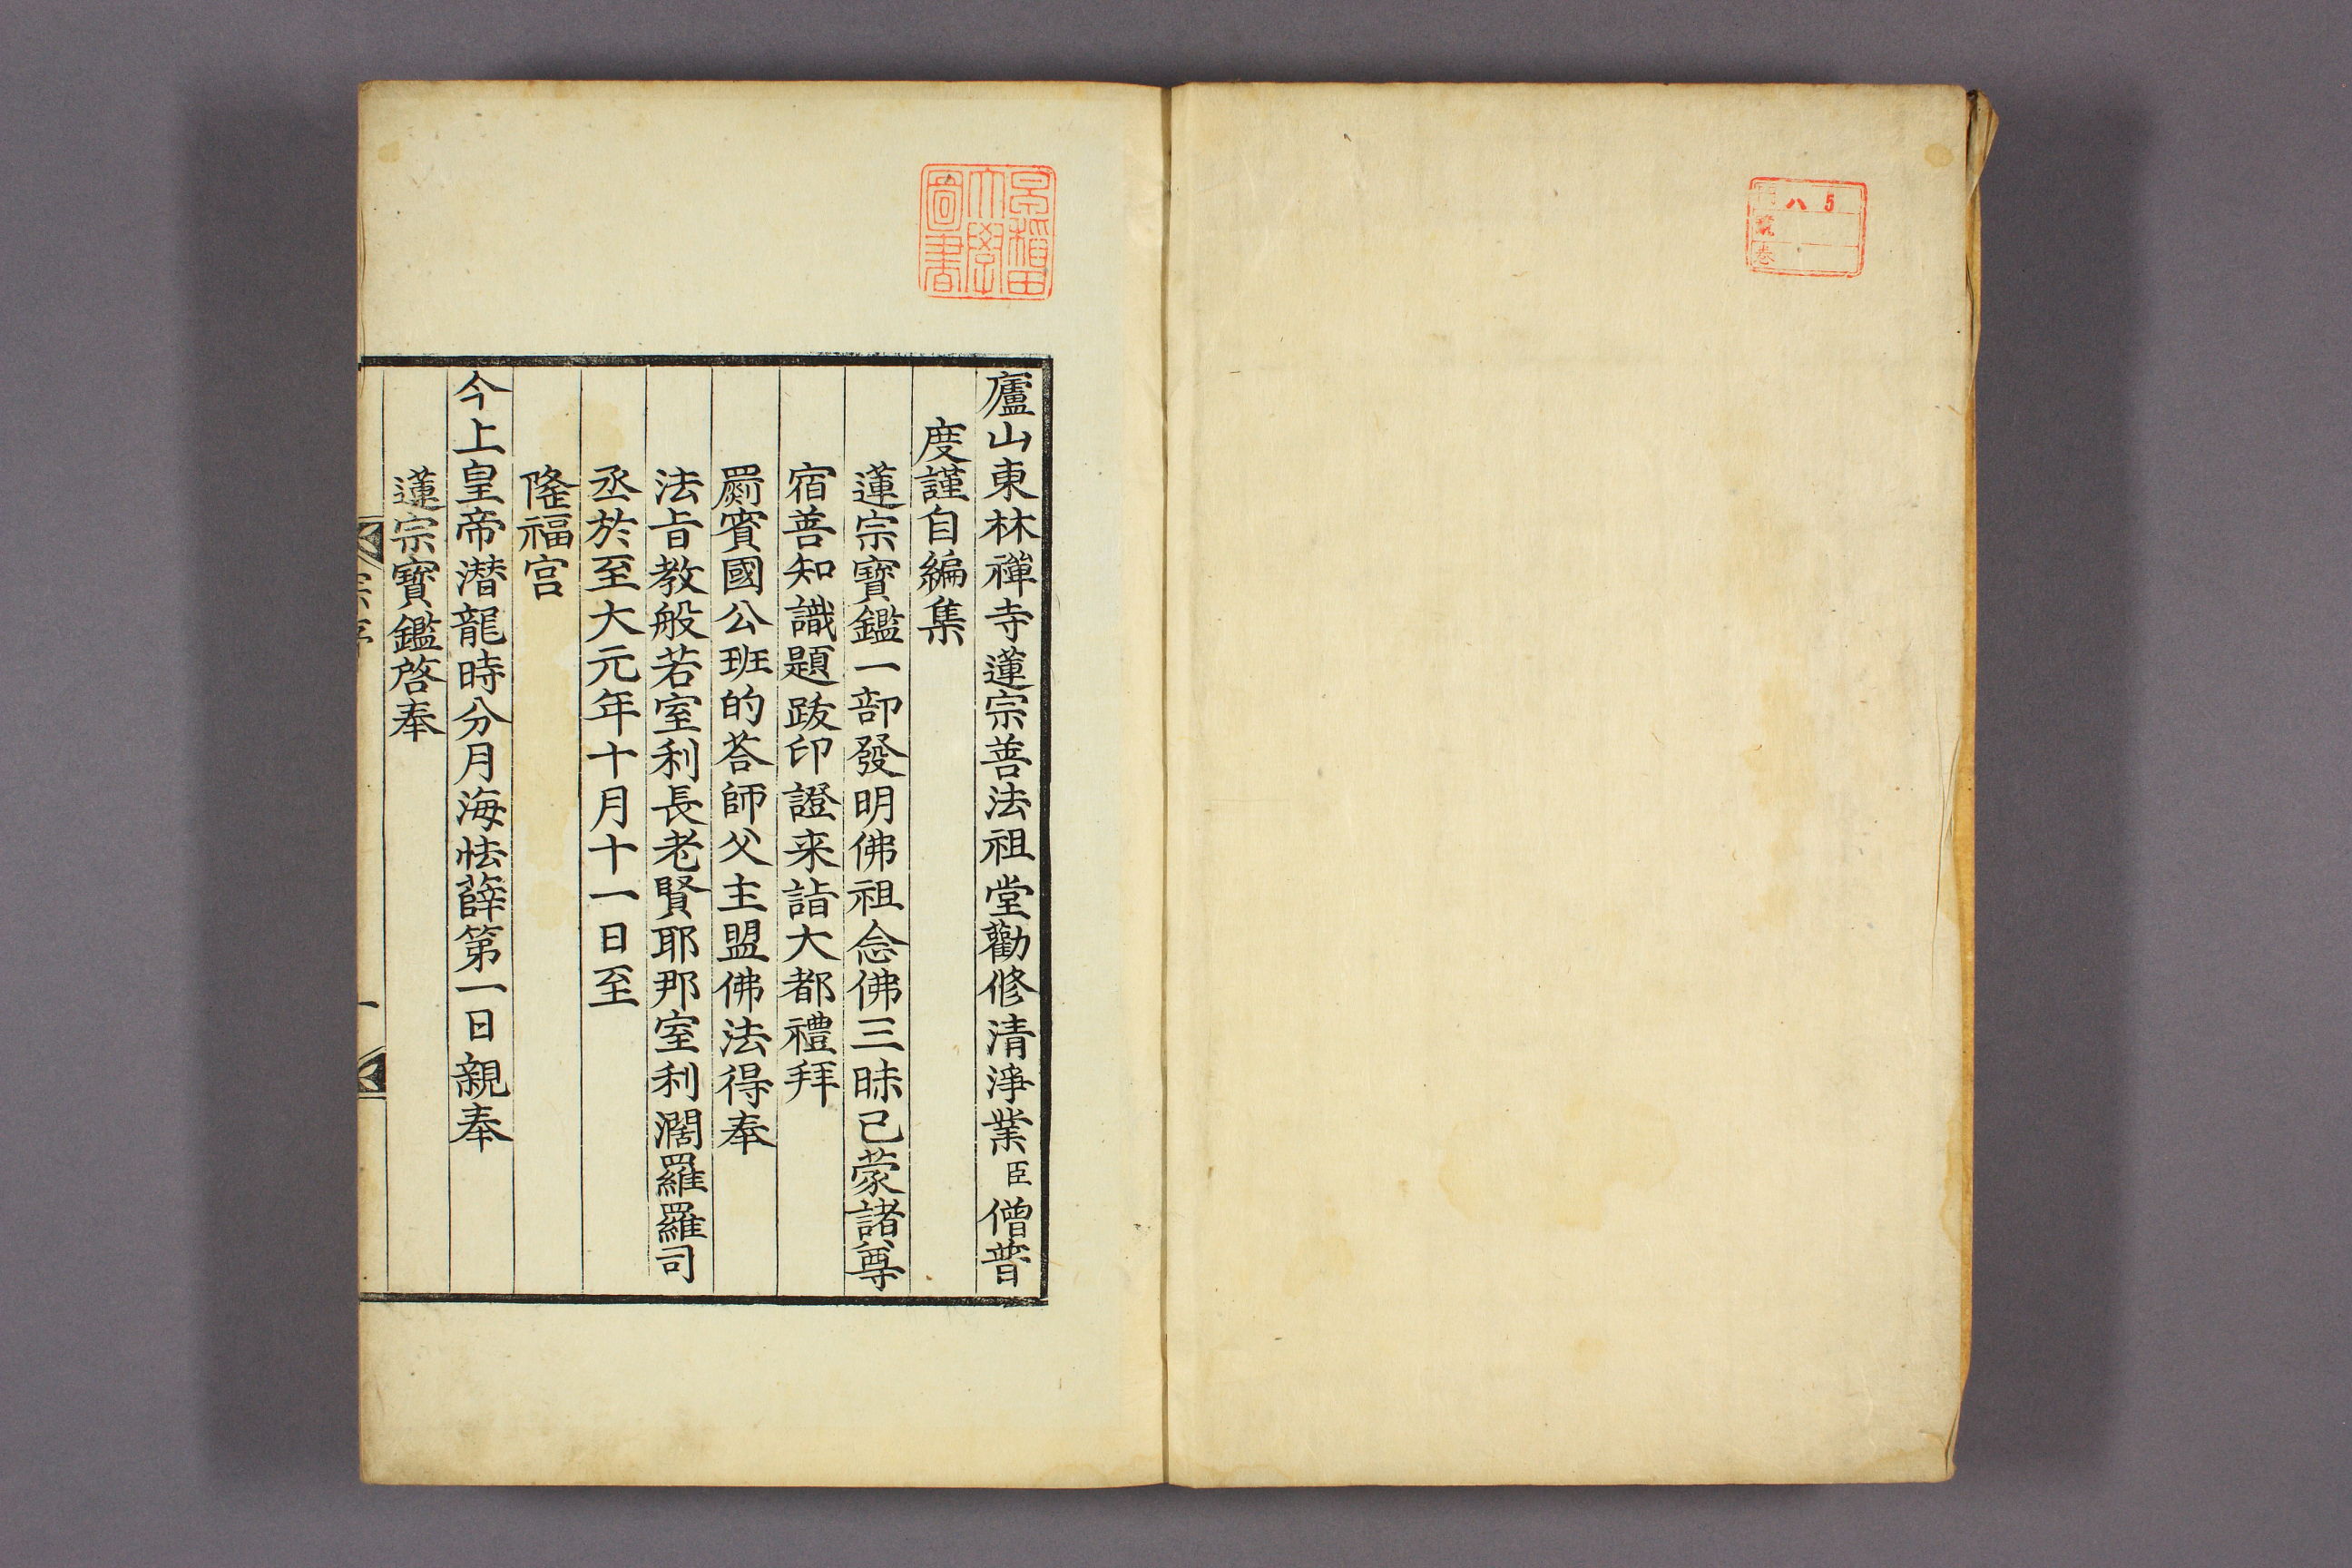 5
八
早稲田
大學
圖書
廬山東林禪寺蓮宗善法祖堂勸修清淨業臣僧普
度謹自編集
蓮宗寳鑑一部發明佛祖念佛三昧已蒙諸尊
宿善知識題跋印證来詣大都禮拜
罽賓國公班的荅師父主盟佛法得奉
法旨教般若室利長老賢耶那室利濶羅羅司
丞於至大元年十月十一日至
隆福宫
今上皇帝潜龍時分月海怯薛第一日親奉
蓮宗寳鑑啓奉
一